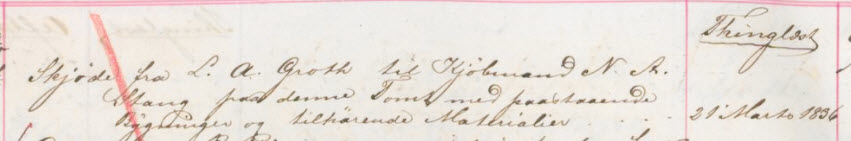 Thinglæst
Skjøde fra L. A. Groth til Kjøbmand N. A.
Stang paa denne Tomt med paastaaende
Bygninger og tilhørende Materialier . . . .
21 Marts 1836